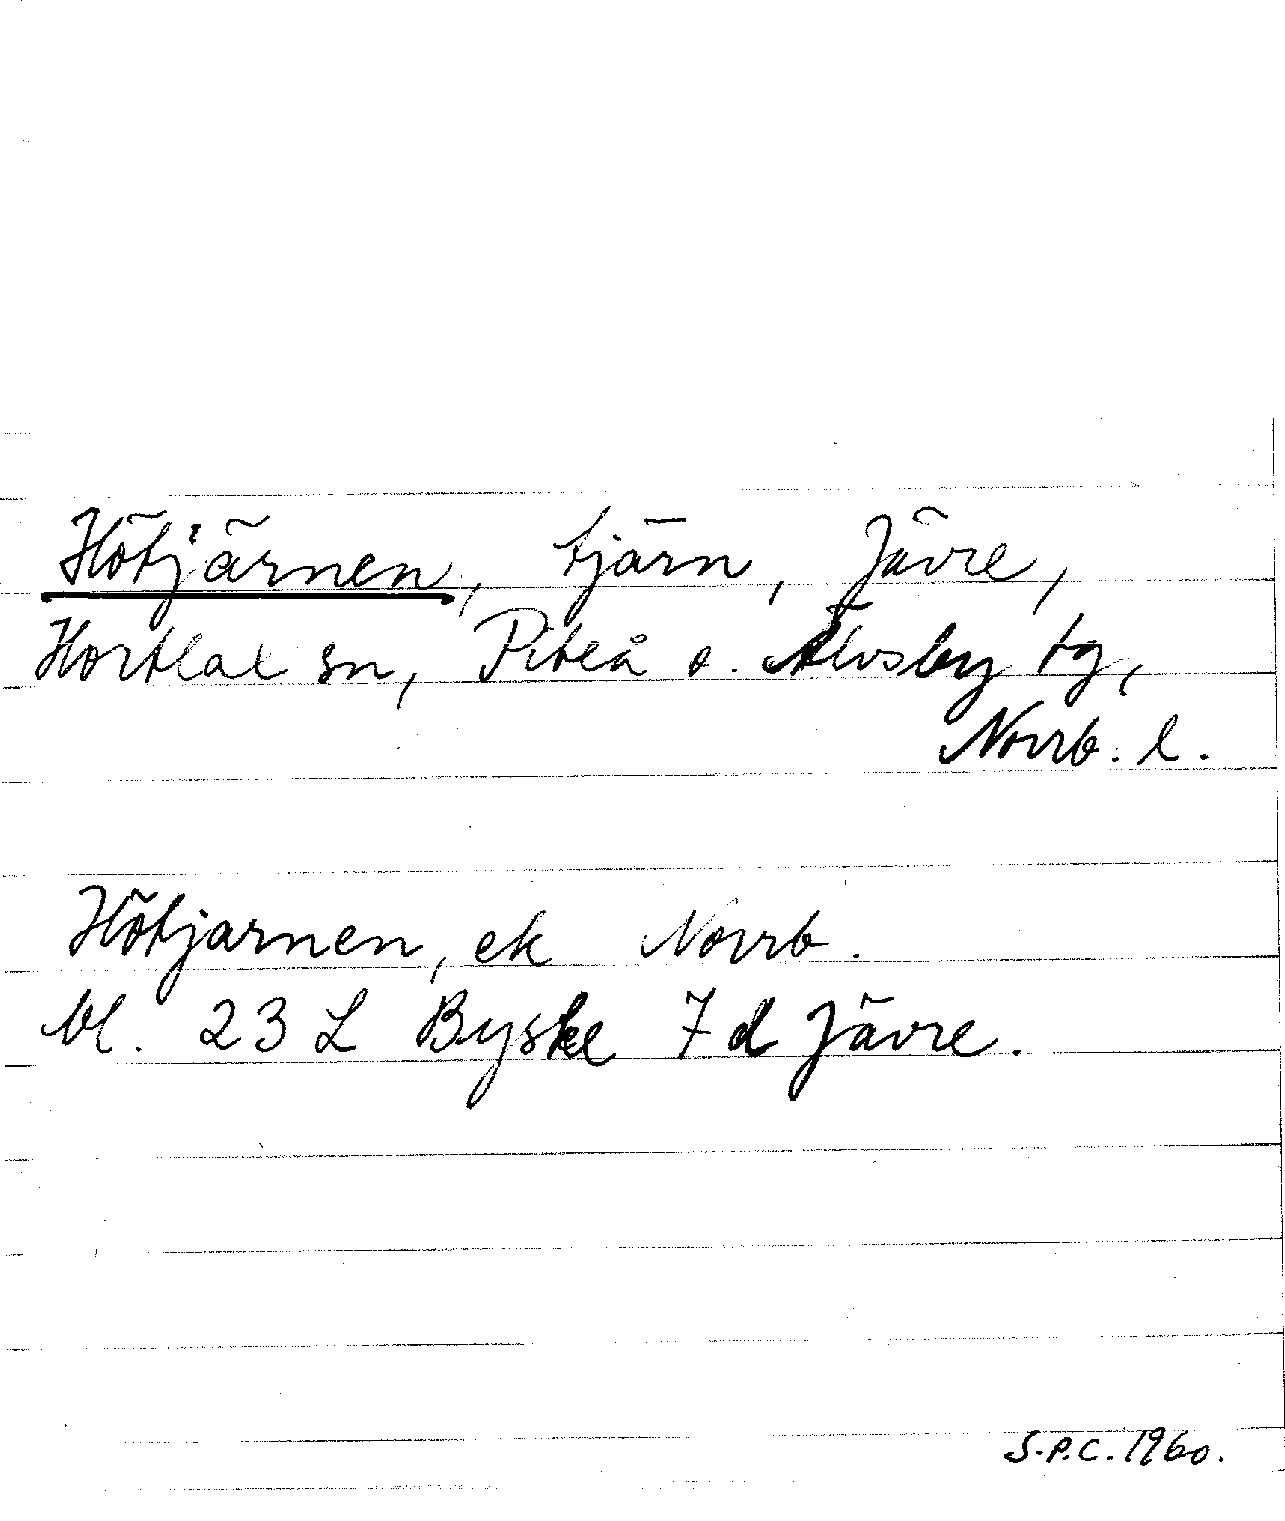 Hötjärnen, tjärn, Jävre,
Hortlax sn, Piteå o. Älvsby tg,
Norrb. l.
Hötjärnen, ek Norrb.
bl. 23 L Byske 7 d Jävre.
S.P.C. 1960.